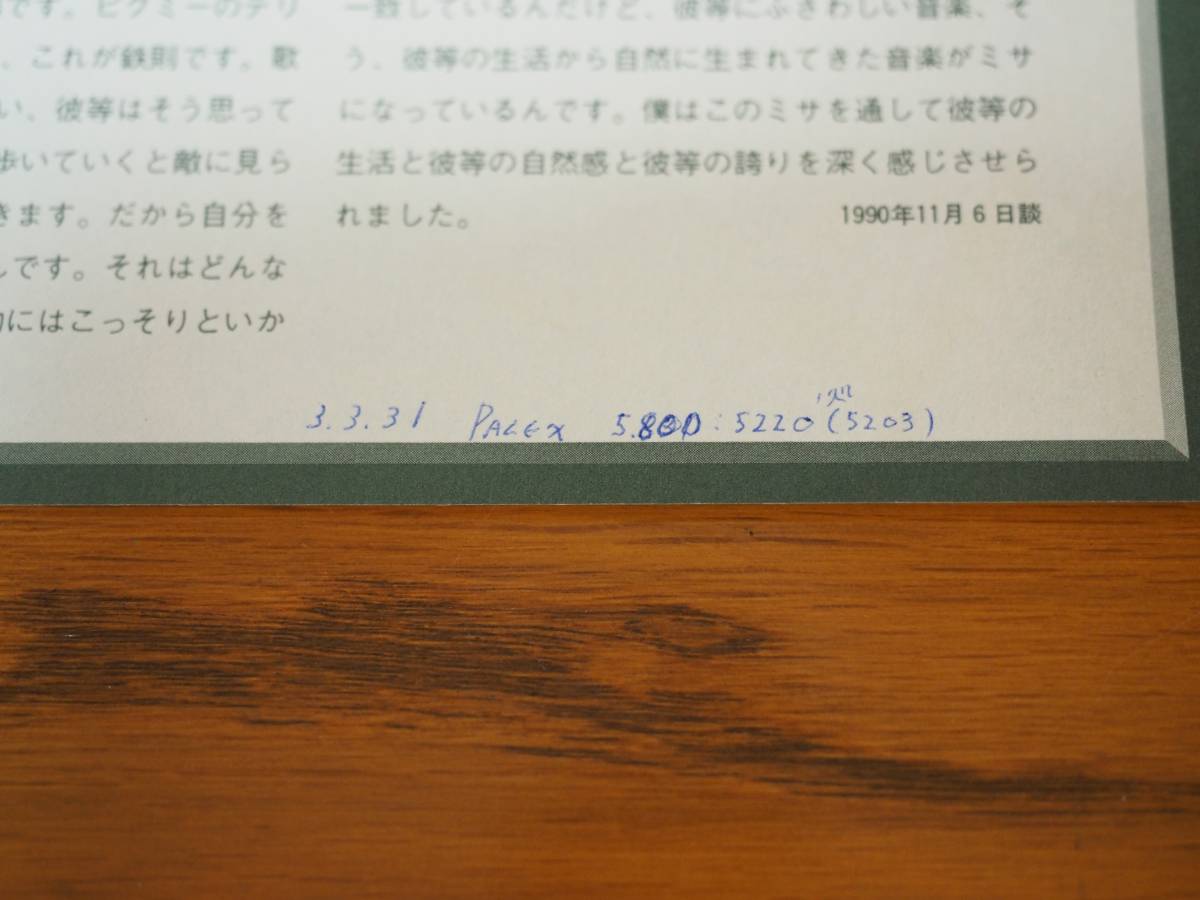 です。ピグミーのテリ
、これが鉄則です。歌
い、彼等はそう思って
歩いていくと敵に見ら
きます。だから自分を
しです。それはどんな
的にはこっそりといか
一致しているんだけど、彼等にふさわしい音楽、そ
う、彼等の生活から自然に生まれてきた音楽がミサ
になっているんです。僕はこのミサを通して彼等の
生活と彼等の自然感と彼等の誇りを深く感じさせら
れました。
1990年11月6日談
3.3.31 PALEX 5.800:5220(5203)